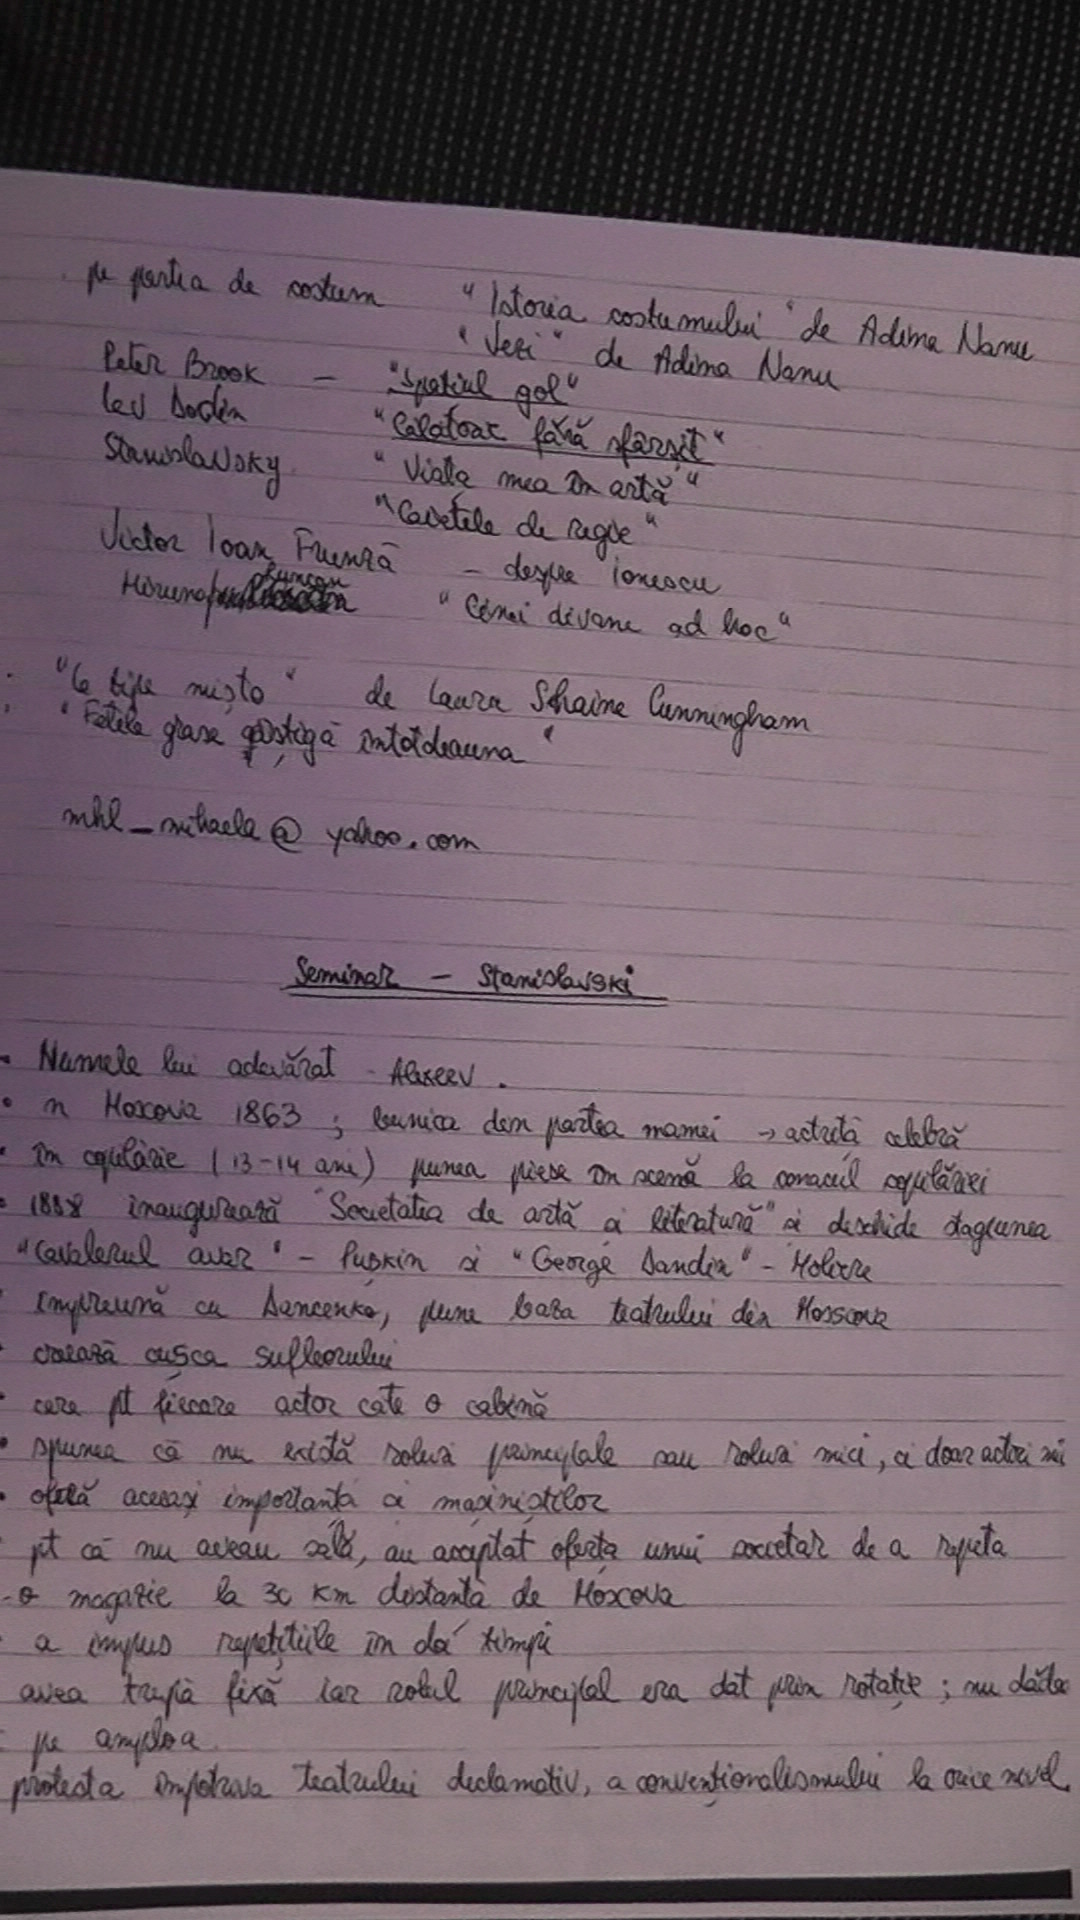 pe partea de costum "Istoria costumului" de Adina Nanu
"Vezi" de Adina Nanu
Peter Brook - "Spatiul gol"
Lev Dodin "Călătorie fără sfârșit"
Stanislavsky "Viata mea în artă"
"Caietele de regie"
Victor Ioan Frunză - despre Ionescu
Miruna Runcan "Cinci divane ad hoc"
"6 tipe mișto" de Laura Shaine Cunningham
"Fetele grase câștigă întotdeauna"
mhl_mihaela@yahoo.com
Seminar - Stanislavski
• Numele lui adevărat - Alexeev.
• n Moscova 1863 ; bunica din partea mamei → actriță celebră
• în copilărie (13-14 ani) punea piese în scenă la conacul copilăriei
• 1888 inaugurează "Societatea de artă și literatură" și deschide stagiunea
"Cavalerul avar" - Pușkin și "George Dandin" - Moliere
împreună cu Dancenko, pune baza teatrului din Moscova
• crează cușca sufleorului
• cere pt fiecare actor cate o cabină
• spunea că nu există roluri principale sau roluri mici, ci doar actori mici
• oferă aceeași importanță și mașiniștilor
pt că nu aveau sală, au acceptat oferta unui societar de a repeta
o magazie la 30 km distanță de Moscova
a impus repetițiile în doi timpi
avea trupă fixă iar rolul principal era dat prin rotație ; nu dădea
pe amploa
protesta împotriva teatrului declamativ, a convenționalismului la orice nivel